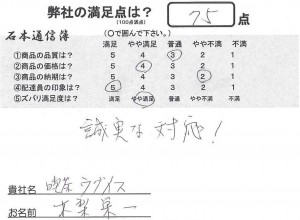 弊社の満足点は? 75 点
(100点満点)
石本通信簿 (○で囲んで下さい。)
満足 やや満足 普通 やや不満 不満
①商品の品質は? 5 4 3 2 1
②商品の価格は? 5 4 3 2 1
③商品の納期は? 5 4 3 2 1
④配達員の印象は? 5 4 3 2 1
⑤ズバリ満足度は? 満足 やや満足 普通 やや不満 不満
誠実な対応!
貴社名 喫茶ウグイス
お名前 木梨 栄一